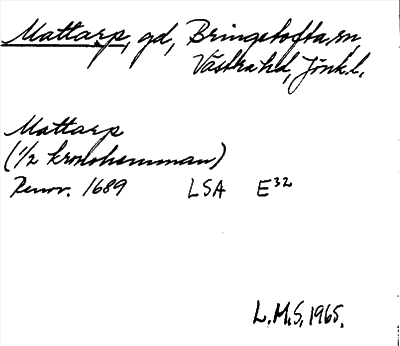 Mattarp, gd, Bringetofta sn
Västra hd, Jönk.l.
Mattarp
(1/2 kronohemman)
Renov. 1689 LSA E32
L.M.S. 1965.